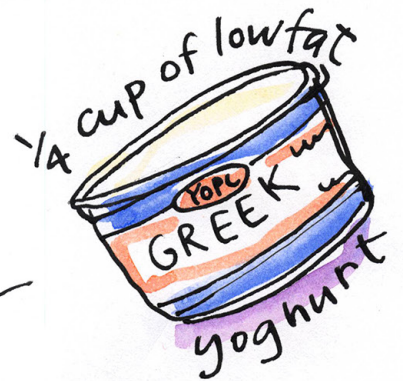 1/4 cup of lowfat
YOPL
GREEK
yoghurt